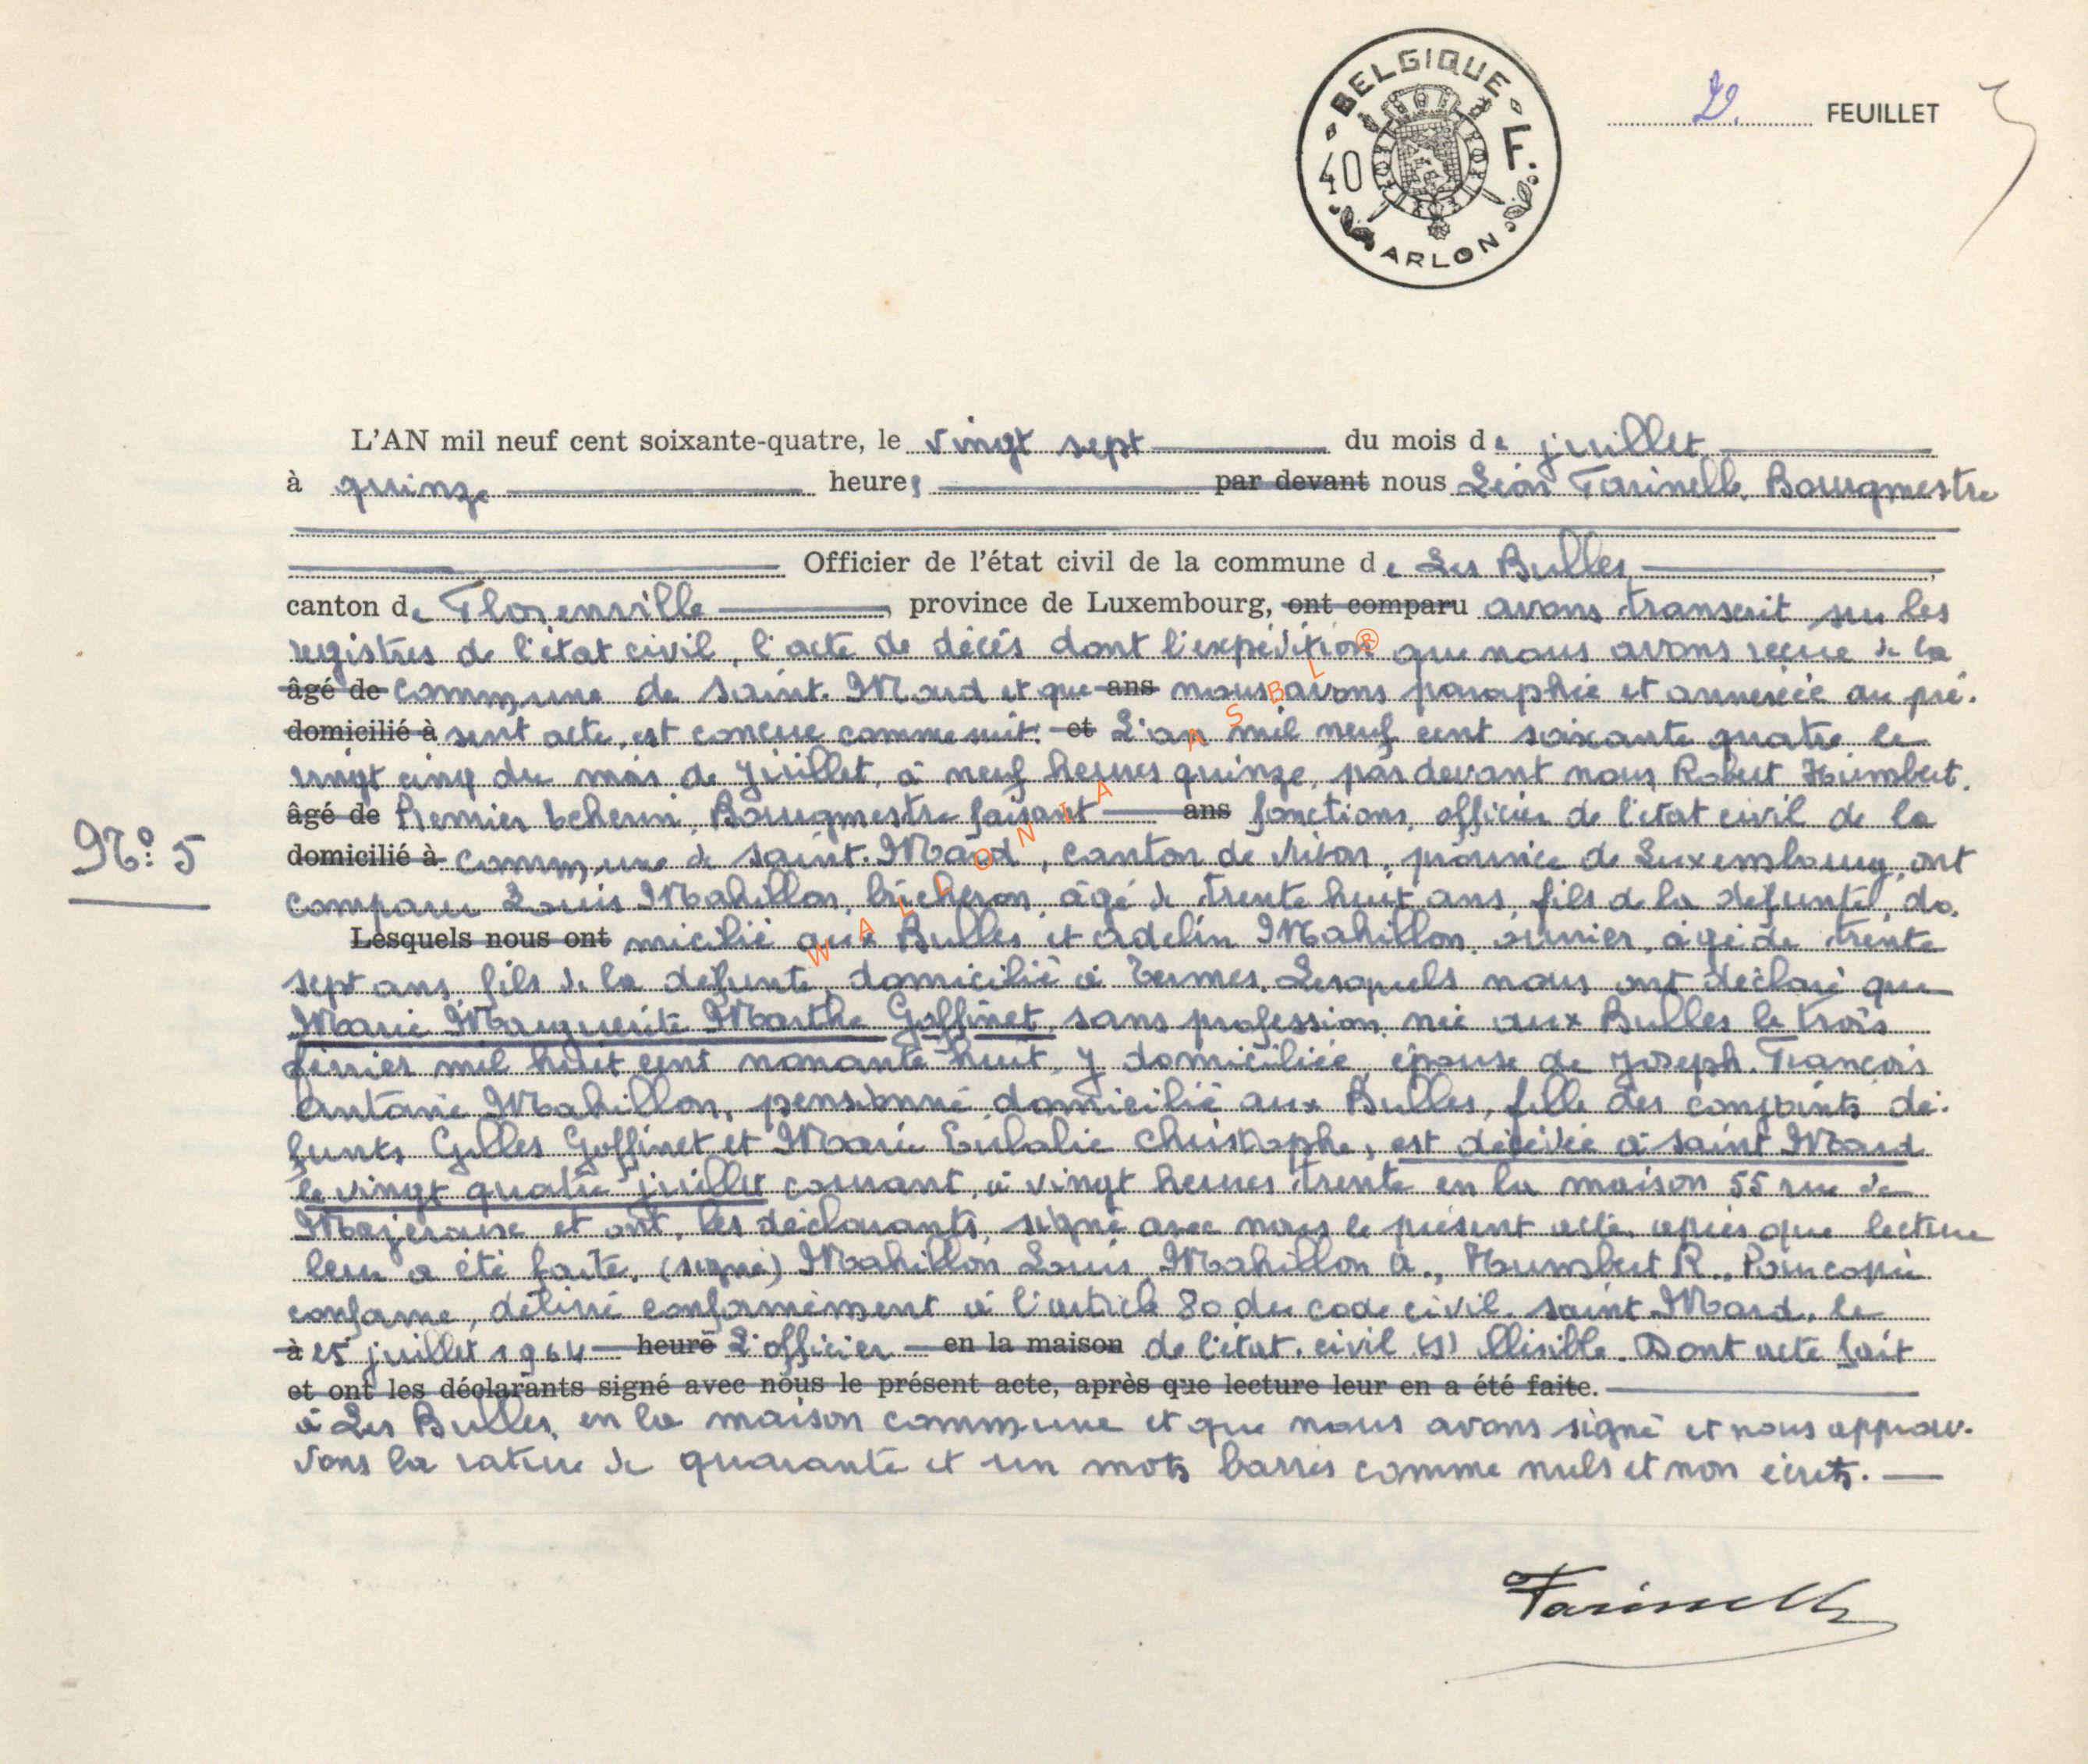 BELGIQUE
40 F.
ARLON
2. FEUILLET
L'AN mil neuf cent soixante-quatre, le vingt sept du mois de juillet
à quinze heures par devant nous Léon Farinelle, Bourgmestre
Officier de l'état civil de la commune de Les Bulles,
canton de Florenville, province de Luxembourg, ont comparu avons transcrit sur les
registres de l'état civil, l'acte de décés dont l'expédition que nous avons recue de la
âgé de commune de Saint-Mard et que ans nous avons paraphée et annexée au pré-
domicilié à sent acte, est concue comme suit: et L'an mil neuf cent soixante quatre le
vingt cinq du mois de juillet, à neuf heures quinze, par devant nous Robert Humbert,
âgé de Premier Echevin, Bourgmestre faisant ans fonctions, officier de l'état civil de la
domicilié à commune de Saint-Mard, canton de Virton, province de Luxembourg, ont
N° 5
comparu Louis Mahillon, bûcheron, âgé de trente huit ans, fils de la défunte, do-
Lesquels nous ont micilié aux Bulles et Adelin Mahillon, ouvrier, âgé de trente
sept ans, fils de la défunte, domicilié à Termes. Lesquels nous ont déclaré que
Marie Marguerite Marthe Goffinet, sans profession, née aux Bulles le trois
février mil huit cent nonante huit, y domiciliée, épouse de Joseph François
Antoine Mahillon, pensionné, domicilié aux Bulles, fille des conjoints dé-
funts Gilles Goffinet et Marie Eulalie Christophe, est décédée à Saint Mard
le vingt quatre juillet courant, à vingt heures trente en la maison 55 rue de
Majeroux et ont, les déclarants, signé avec nous le présent acte, après que lecture
leur a été faite. (signé) Mahillon Louis, Mahillon A., Humbert R., Pour copie
conforme, délivré conformément à l'article 80 du code civil. Saint Mard, le
à 25 juillet 1964 heure L'officier en la maison de l'état civil (s) illisible. Dont acte fait
et ont les déclarants signé avec nous le présent acte, après que lecture leur en a été faite.
à Les Bulles, en la maison commune et que nous avons signé et nous approu-
vons la rature de quarante et un mots barrés comme nuls et non écrits.
Farinelle
WALLONIA ASBL ®